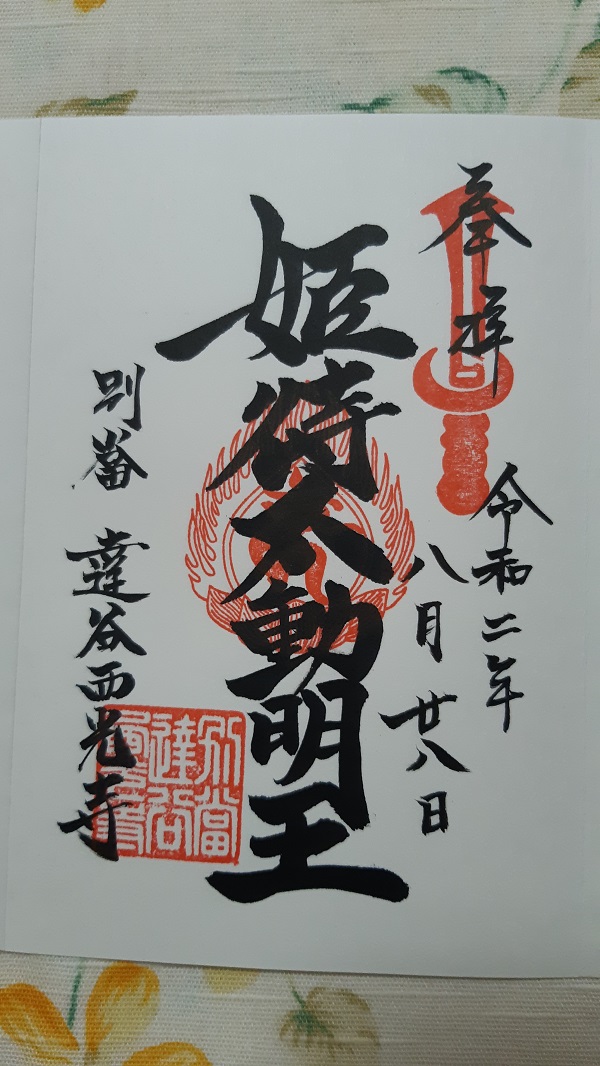 奉拝
令和二年
八月廿八日
姫待不動明王
別當 達谷西光寺
別當
達谷